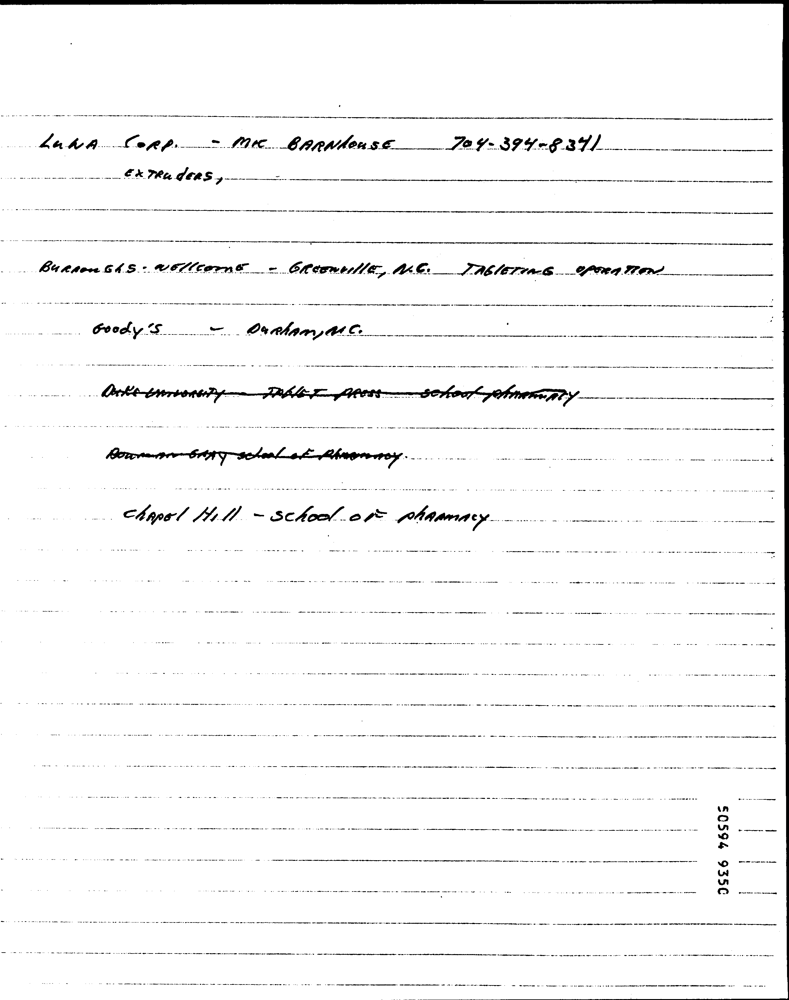 LUNA CORP. - MR BARNHOUSE 704-394-8341
EXTRUDERS,
BURROUGHS-WELLCOME - GREENVILLE, N.C. TABLETING OPERATION
Goody's - Durham, N.C.
DUKE UNIVERSITY - TABLET PRESS - school pharmacy
BOWMAN GRAY school of Pharmacy.
Chapel Hill - School OF pharmacy
50594 9350